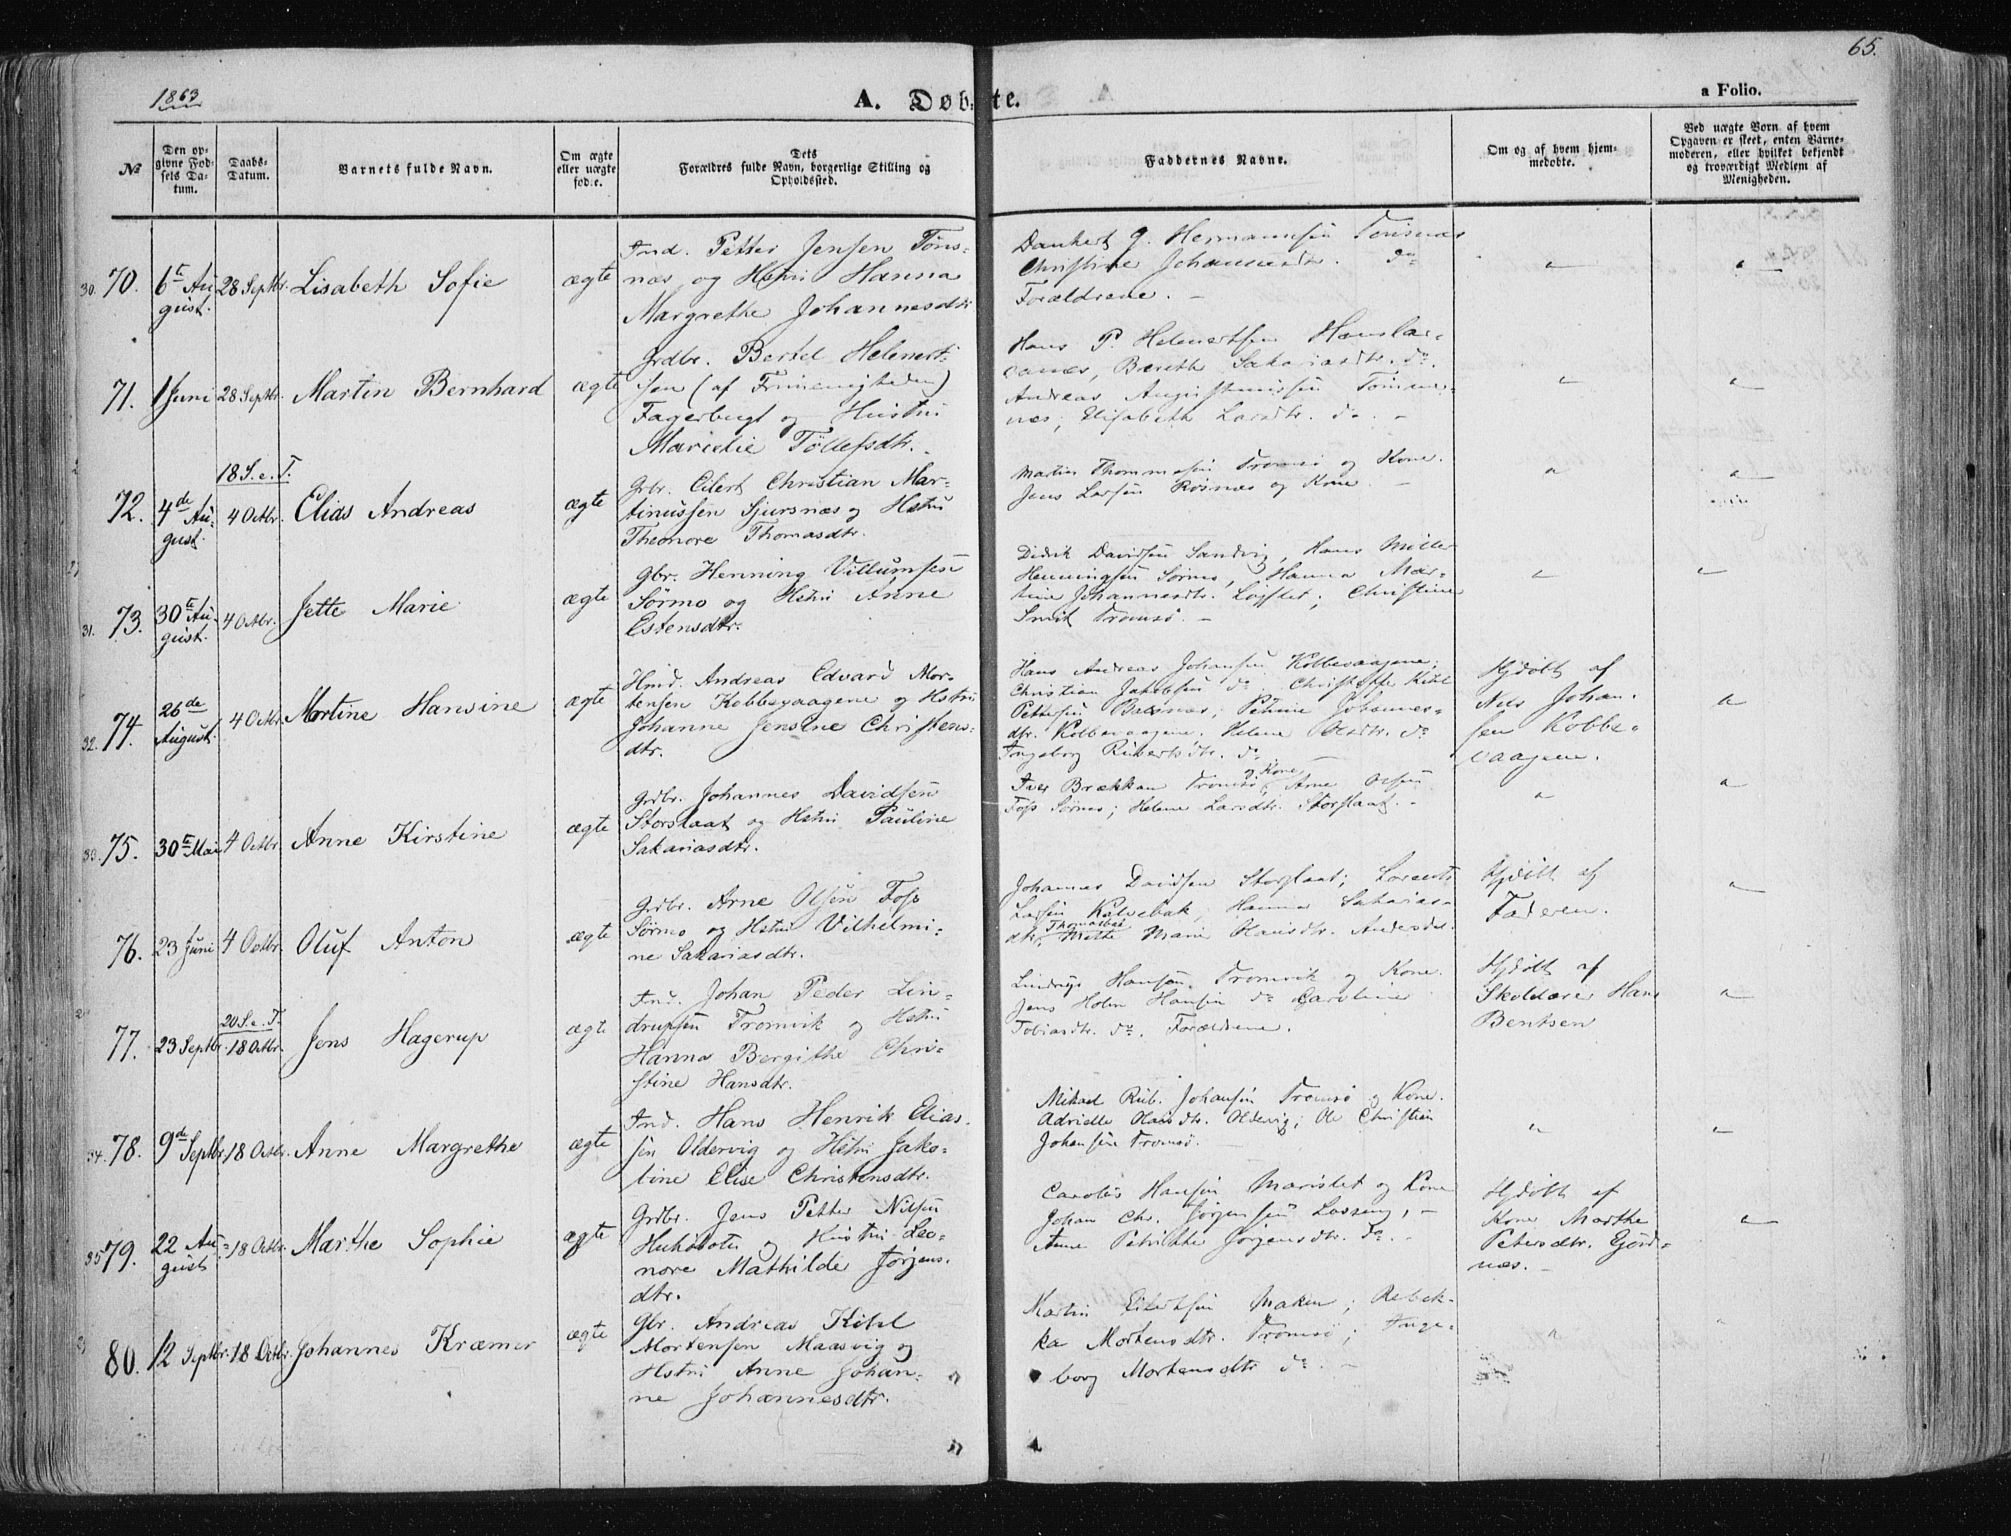 65.
1863
A. Døbte.
a Folio.
No
Den opgivne Fødsels Datum.
Daabs-Datum.
Barnets fulde Navn.
Om ægte eller uægte fødte.
Dets Forældres fulde Navn, borgerlige Stilling og Opholdssted.
Faddernes Navne.
Om og af hvem hjemmedøbte.
Ved uægte Børn af hvem Opgaven er skeet, enten Barnemoderen, eller hvilket bekjendt og troværdigt Medlem af Menigheden.
30. 70. 6te August. 28 Septbr. Lisabeth Sofie ægte
Ind. Petter Jensen Tøns-
næs og Hstru Hanna
Margrethe Johannesdtr
Dankert J. Hermannsen Tønsnæs
Christine Johannesdtr. do
Forældrene. -
71. 1 Juni 28 Septbr. Martin Bernhard ægte
Grdbr. Bertel Helnert-
sen (af Frimenigheden)
Fagerbugt og Hustru
Marielie Tøllefsdtr.
Hans P. Helnertsen Hanslar-
sanæs, Bereth Sakariasdtr. do.
Andreas Augustinussen Tønne-
næs, Elisabeth Larsdtr. do. -
18 S. e. T.
72. 4de August. 4 Octbr. Elias Andreas ægte
Grbr. Eilert Christian Mar-
tinussen Sjursnæs og Hstru
Theonore Thomasdtr.
Martin Thommesen Tromsø og Kone.
Jens Larsen Røsnæs og Kone -
31. 73. 30te August. 4 Octbr. Jette Marie ægte
Gbr. Henning Villumsen
Sørmo og Hstru Anne
Estensdtr.
Didrik Davidsen Sandvig, Hans Miller
Henningsen Sørmo, Hanna Mar-
tine Johannesdtr. ; Christine
Smit Tromsø. -
32. 74. 26de August. 4 Octbr. Martine Hansine ægte
Hmd. Andreas Edvard Mor-
tensen Kobbevaagene og Hstru
Johanne Jensine Christens-
dtr.
Hans Andreas Johansen Kobbevaagene;
Christian Jakobsen do Christoffe Kihl
Pettersen Balsnæs; Petrine Johannes-
dtr. Kobbevaagene. Helene Olsdtr. do
Ingeborg Rubertsdtr. do -
Hjdøbt af
Nils Johan-
sen Kobbe-
vaagene.
33. 75. 30te Mai 4 Octbr. Anne Kirstine ægte
Grdbr. Johannes Davidsen
Storslaat og Hstru Pauline
Sakariasdtr.
og Kone
Iver Brækkan Tromsø, Arne Olsen
Foss Sørmo; Helene Larsdtr. Storslaat. -
76. 23 Juni 4 Octbr. Oluf Anton ægte
Grdbr. Arne Olsen Foss
Sørmo og Hstru Vilhelmi-
ne Sakariasdtr.
Johannes Davidsen Storslaat; Laurents
Larsen Kalvebak, Hanna Sakarias-
dtr, Mette Marie Hansdtr. Andersdal
Hjdøbt af
Faderen.
20 S. e. T.
77. 23 Septbr. 18 Octbr. Jens Hagerup ægte
Ind. Johan Peder Lin-
drupsen Tromvik og Hstru
Hanna Bergithe Chri-
stine Hansdtr.
Lindrup Hansen Tromvik og Kone.
Jens Holm Hansen do Caroline
Tobiasdtr. do. Forældrene.
Hjdøbt af
Skolelærer Hans
Bentsen
34. 78. 9de Septbr. 18 Octbr. Anne Margrethe ægte
Ind. Hans Henrik Elias-
sen Oldervig og Hstru Jako-
bine Elise Christensdtr.
Mikael Rub. Johansen Tromsø og Kone.
Adrielle Olavsdtr. Oldervig; Ole Christian
Johansen Tromsø.
35 79. 22 August 18 Octbr. Marthe Sophie ægte
Grdbr. Jens Petter Nilsen
og Hustru Leo-
nore Mathilde Jørgens-
dtr.
Carolus Hansen og Kone
Johan Chr. Jørgensen , -
Anne Petrikke Jørgensdtr. do. -
Hjdøbt af
Kone Marthe
Petersdtr. Gjøvd-
næs. -
80. 12 Septbr. 18 Octbr. Johannes Kræmer ægte
Gbr. Andreas Kihl
Mortensen Maasvig og
Hstru Anne Johan-
ne Johannesdtr.
Martin Eilertsen Maken; Rebek-
ka Mortensdtr. Tromsø; Inge-
borg Mortensdtr do. -